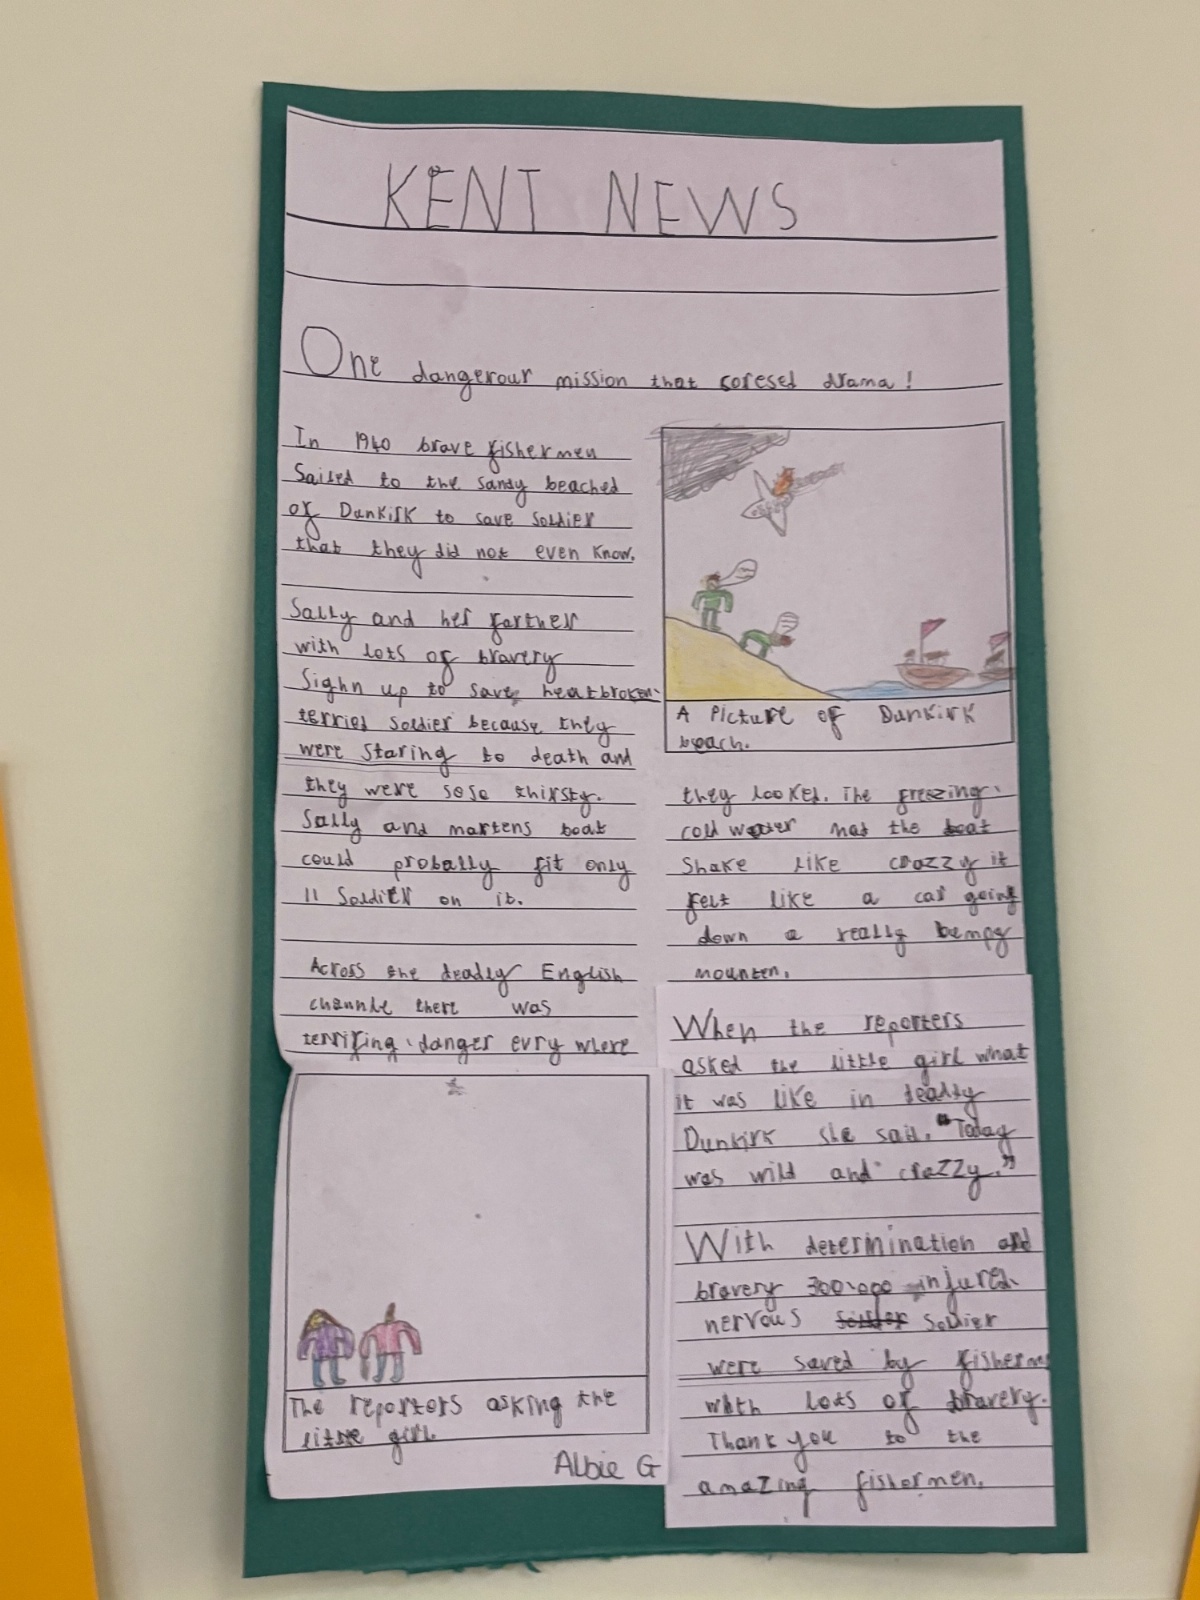 KENT NEWS
One dangerour mission that coresed drama!
In 1940 brave fishermen
Sailed to the sandy beached
of Dunkirk to save soldier
that they did not even know.
Sally and her farther
with lots of bravery
Sighn up to save heatbroken
terried soldier because they
were staring to death and
they were soso thirsty.
Sally and martens boat
could probally fit only
11 Soldier on it.
Across the deadly English
channle there was
terrifing danger evry where
they looked. The freezing
cold water mad the boat
Shake like crazzy it
felt like a car going
down a really bumpy
mounten.
A Picture of Dunkirk
beach.
The reportors asking the
little girl.
Albie G
When the reporters
asked the little girl what
it was like in deadly
Dunkirk she said. "Today
was wild and crazzy."
With determination and
bravery 300,000 injured
nervous soldier
were saved by fisherm
with lots of bravery.
Thank you to the
amazing fishermen.